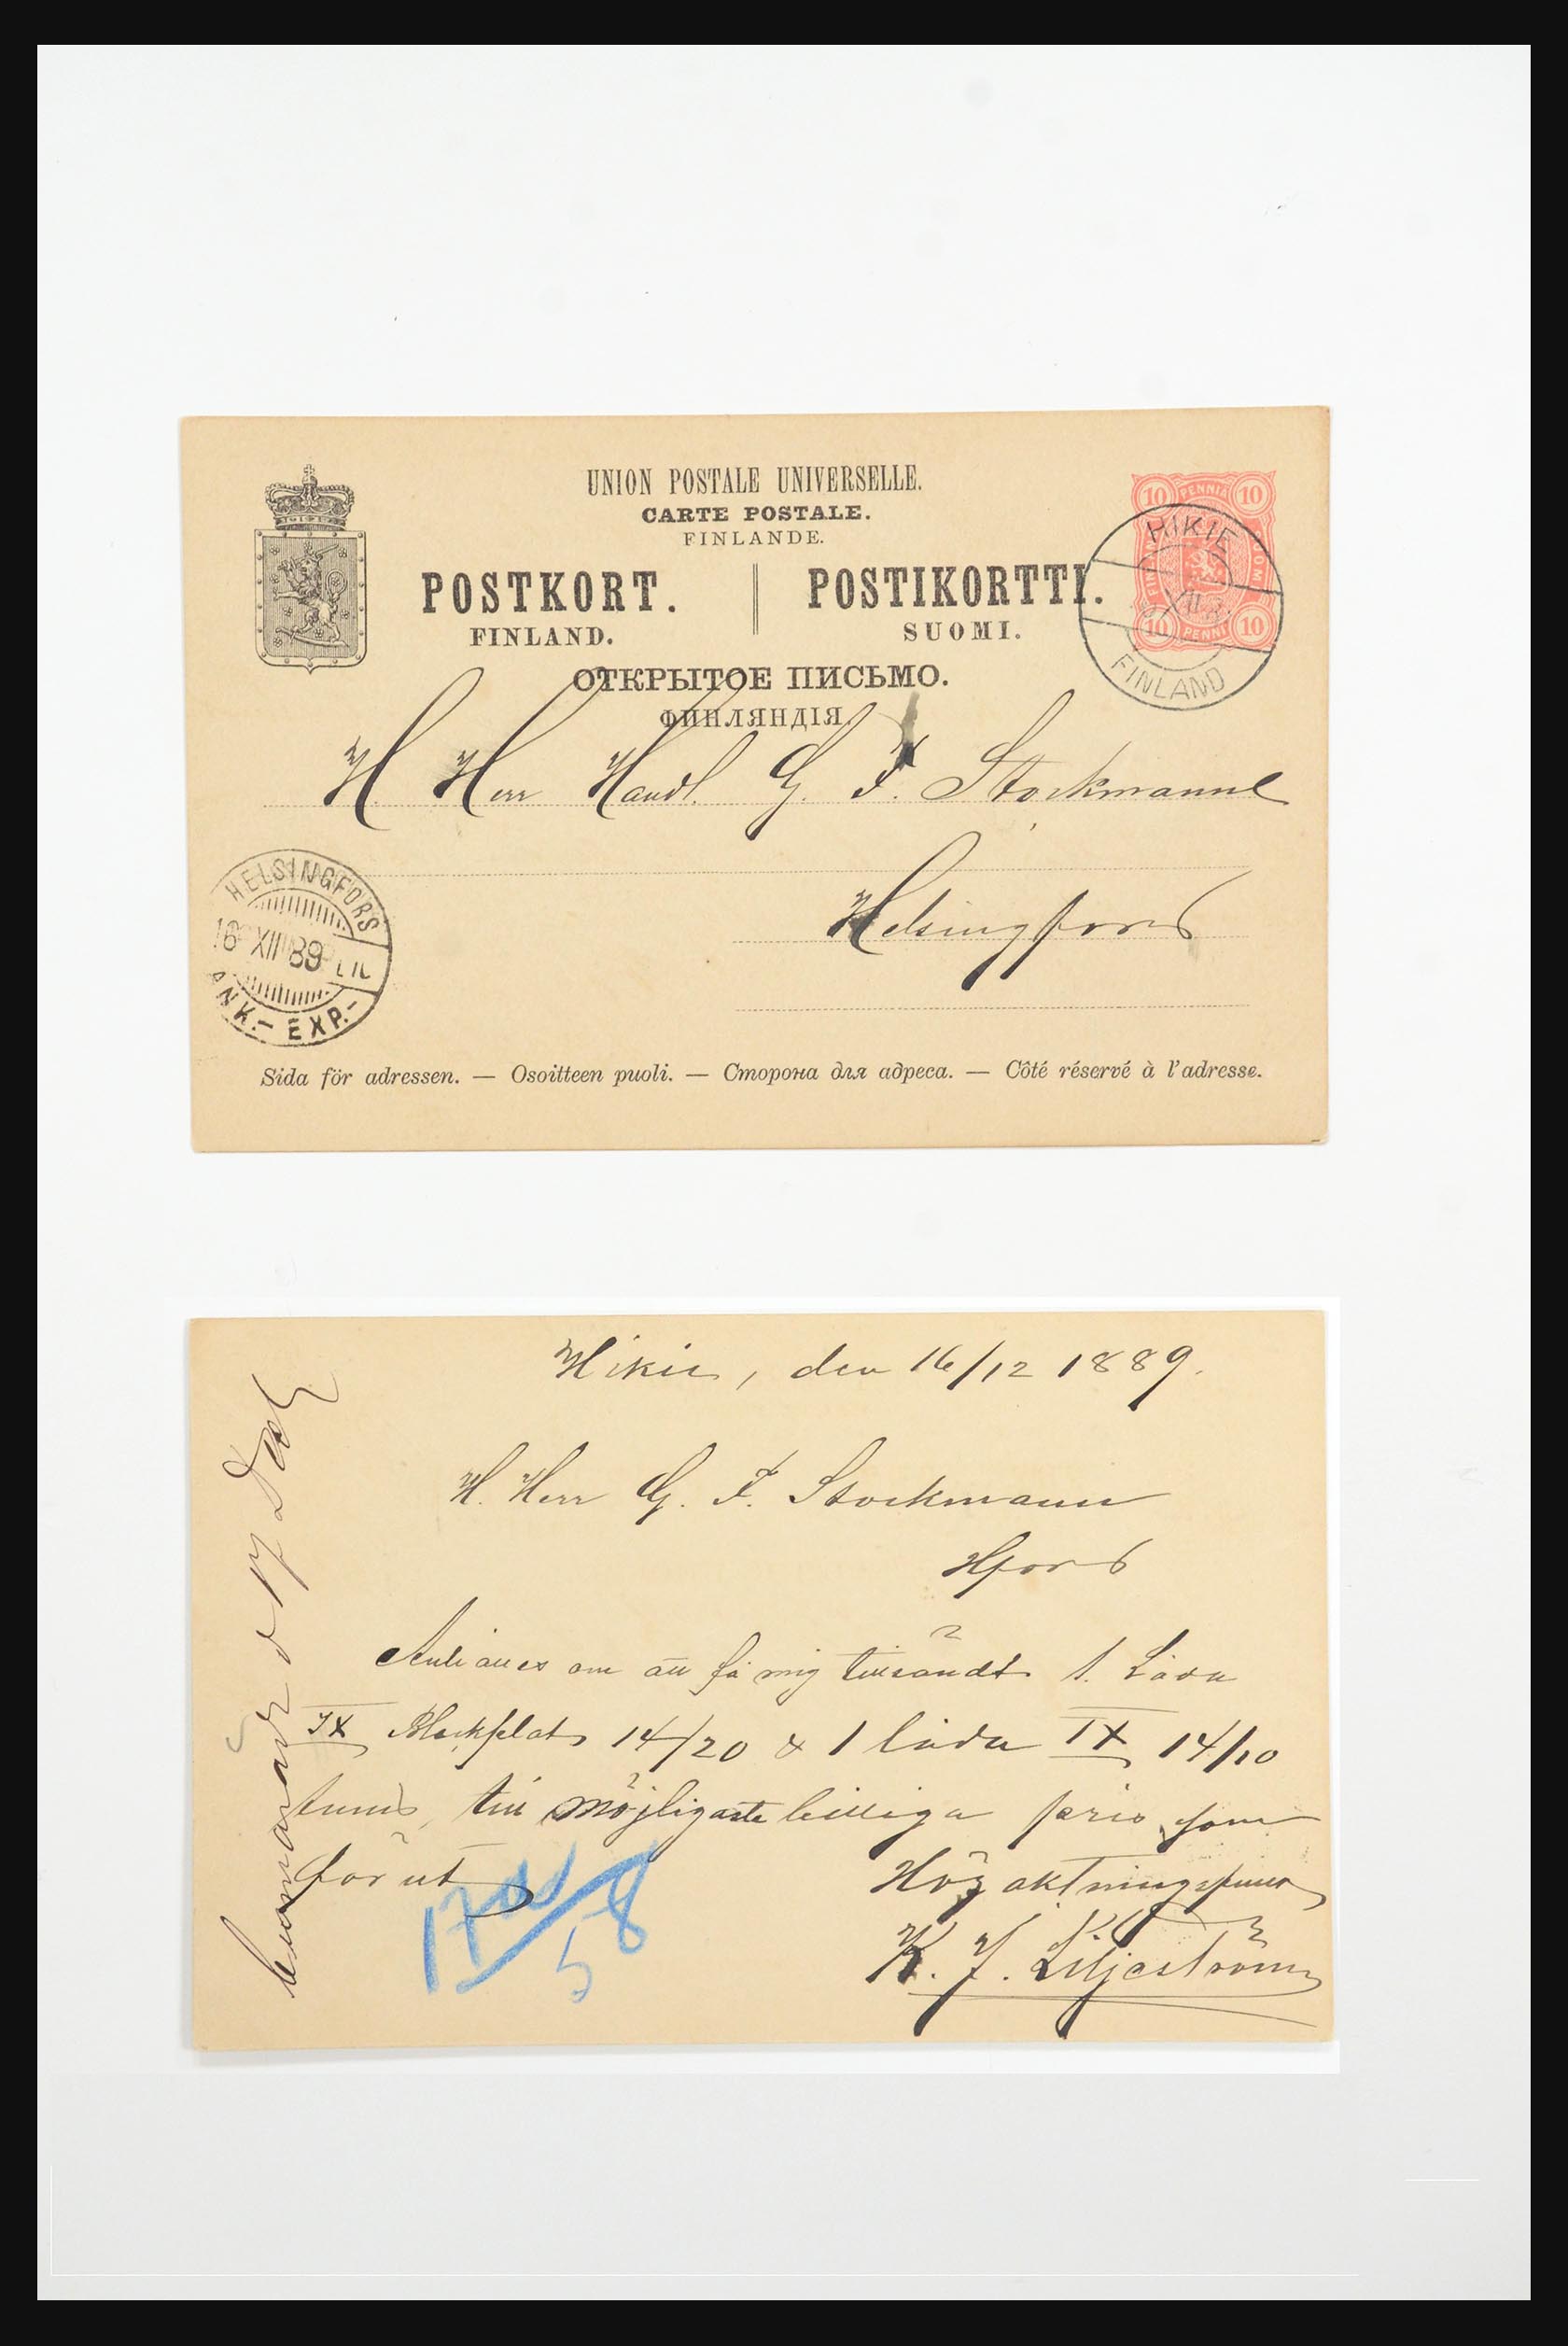 UNION POSTALE UNIVERSELLE.
CARTE POSTALE.
FINLANDE.
POSTKORT. POSTIKORTTI.
FINLAND. SUOMI.
ОТКРЫТОЕ ПИСЬМО.
ФИНЛЯНДІЯ
10 PENNIÄ 10
10 PENNI 10
HIKIE
XII
FINLAND
H. Herr Handl. G. F. Stockmann
Helsingfors
HELSINGFORS
16 XII 89
ANK.- EXP.-
Sida för adressen. — Osoitteen puoli. — Сторона для адреса. — Côté réservé à l'adresse.
Hikie, den 16/12 1889.
H. Herr G. F. Stockmann
Hfors
om att få mig tillsändt 1. Låda
IX Bleckplåt 14/20 & 1 låda IX 14/10
tums, till möjligaste billiga pris som
förut
Högaktningsfullt
K. J. Liljeström
17
58